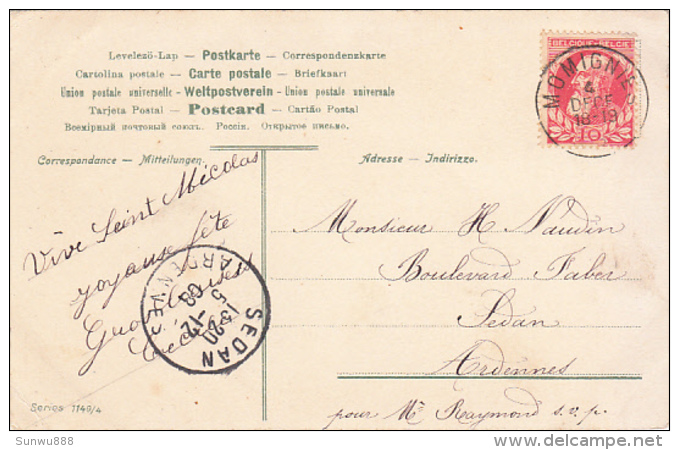 Levelezö-Lap — Postkarte — Correspondenzkarte
Cartolina postale — Carte postale — Briefkaart
Union postale universelle — Weltpostverein — Union postale universale
Tarjeta Postal — Postcard — Cartão Postal
Всемірный почтовый союзъ. Россіи. Открытое письмо.
BELGIQUE-BELGIË
MOMIGNIES
4
DECE
18-19
10
Correspondance — Mitteilungen.
Adresse — Indirizzo.
Vive Saint Nicolas
joyeuse fête
Monsieur H Naudin
Boulevard Faber
Sedan
Ardennes
pour Mr Raymond s.v.p.
SEDAN
ARDENNES
1320
5-12
08
Series 1140/4
Sunwu888
© delcampe.net